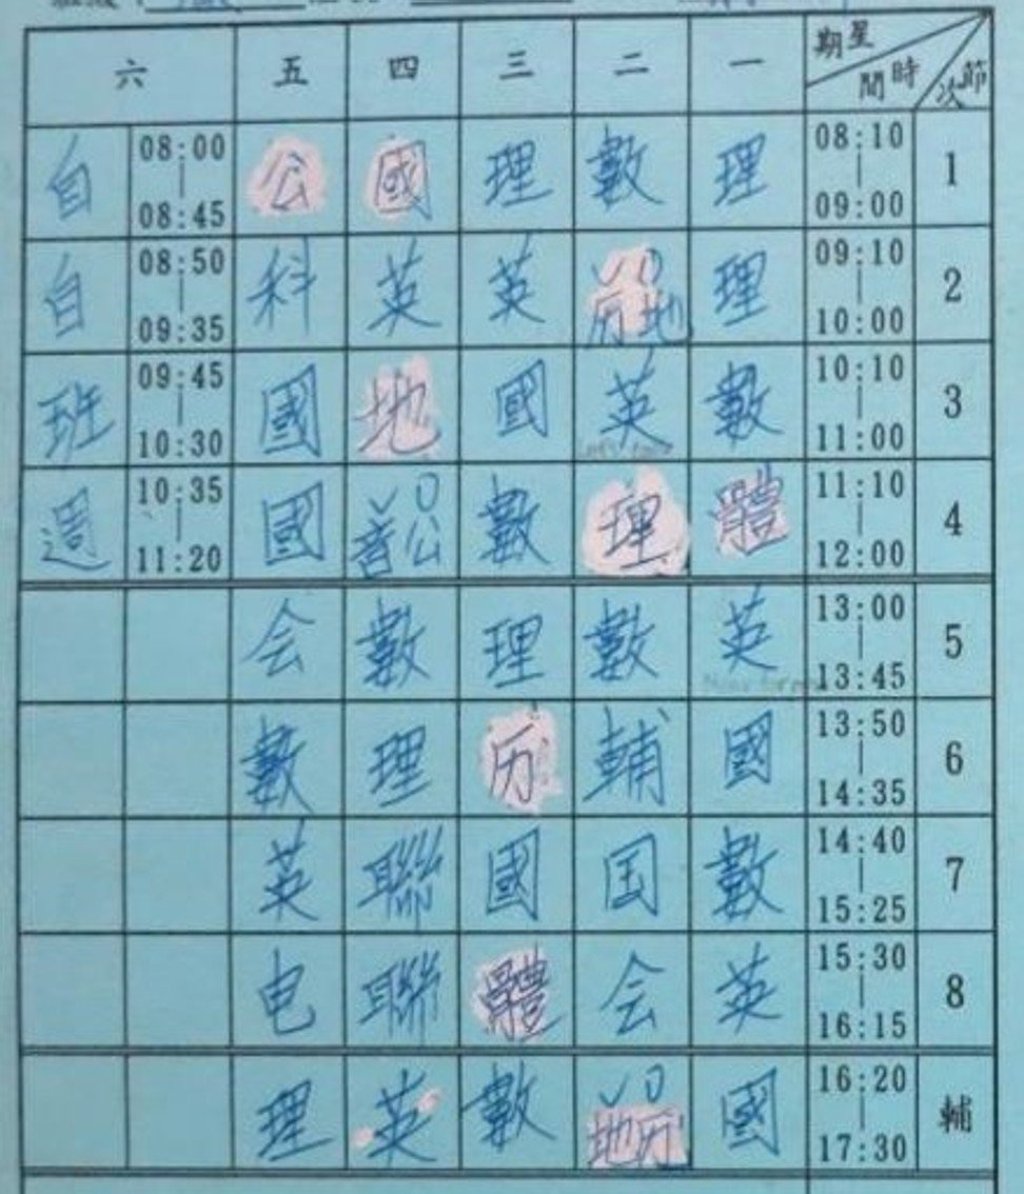 六 五 四 三 二 一 星期 時間 節次
自 08:00 | 08:45 公 國 理 數 理 08:10 | 09:00 1
自 08:50 | 09:35 科 英 英 历地 理 09:10 | 10:00 2
班 09:45 | 10:30 國 地 國 英 數 10:10 | 11:00 3
週 10:35 | 11:20 國 音公 數 理 體 11:10 | 12:00 4
会 數 理 數 英 13:00 | 13:45 5
數 理 历 輔 國 13:50 | 14:35 6
英 聯 國 国 數 14:40 | 15:25 7
电 聯 體 会 英 15:30 | 16:15 8
理 英 數 地历 國 16:20 | 17:30 輔